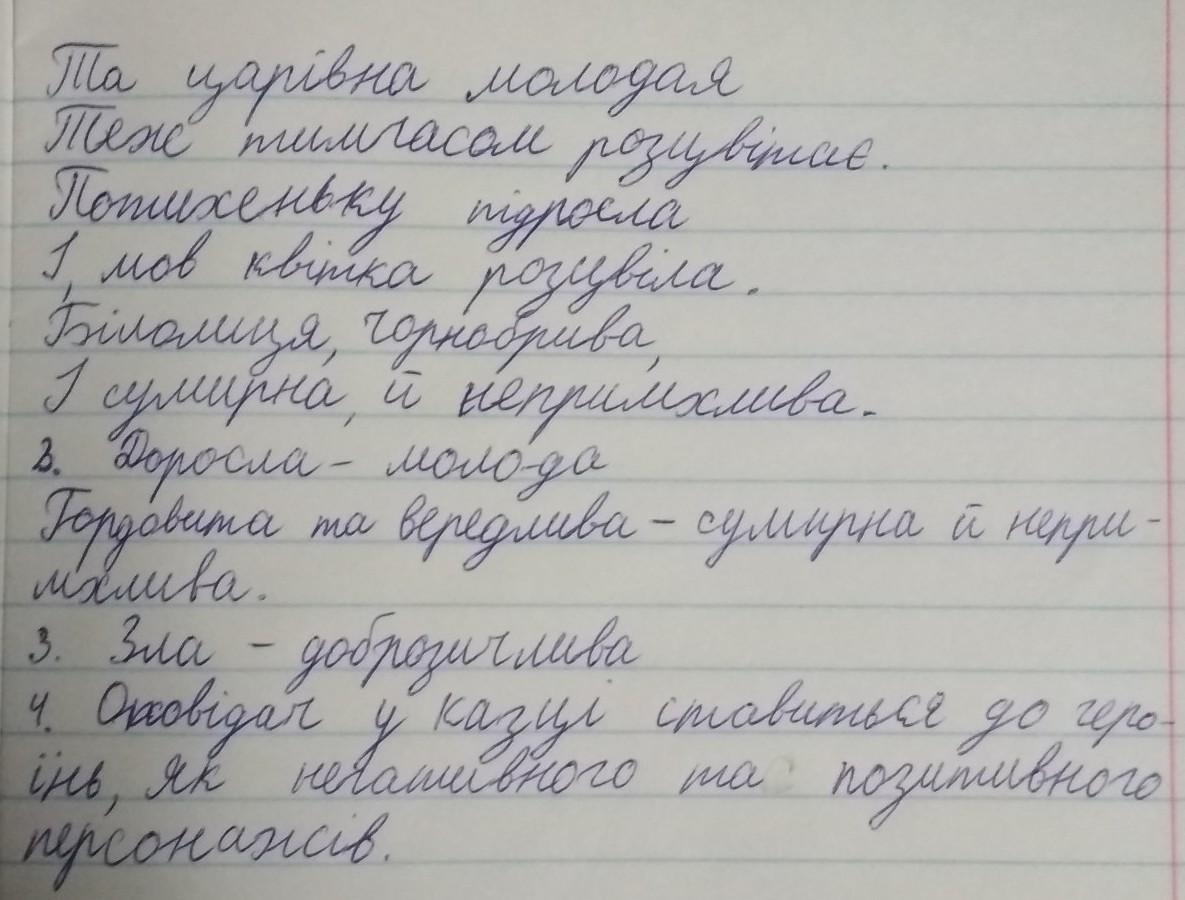 Та царівна молодая
Теж тимчасом розцвітає.
Потихеньку підросла
І, мов квітка розцвіла.
Білолиця, чорнобрива,
І сумирна, й непримхлива.
2. Доросла - молода
Гордовита та вередлива - сумирна й непри-
мхлива.
3. Зла - доброзичлива
4. Оповідач у казці ставиться до геро-
їнь, як негативного та позитивного
персонажів.